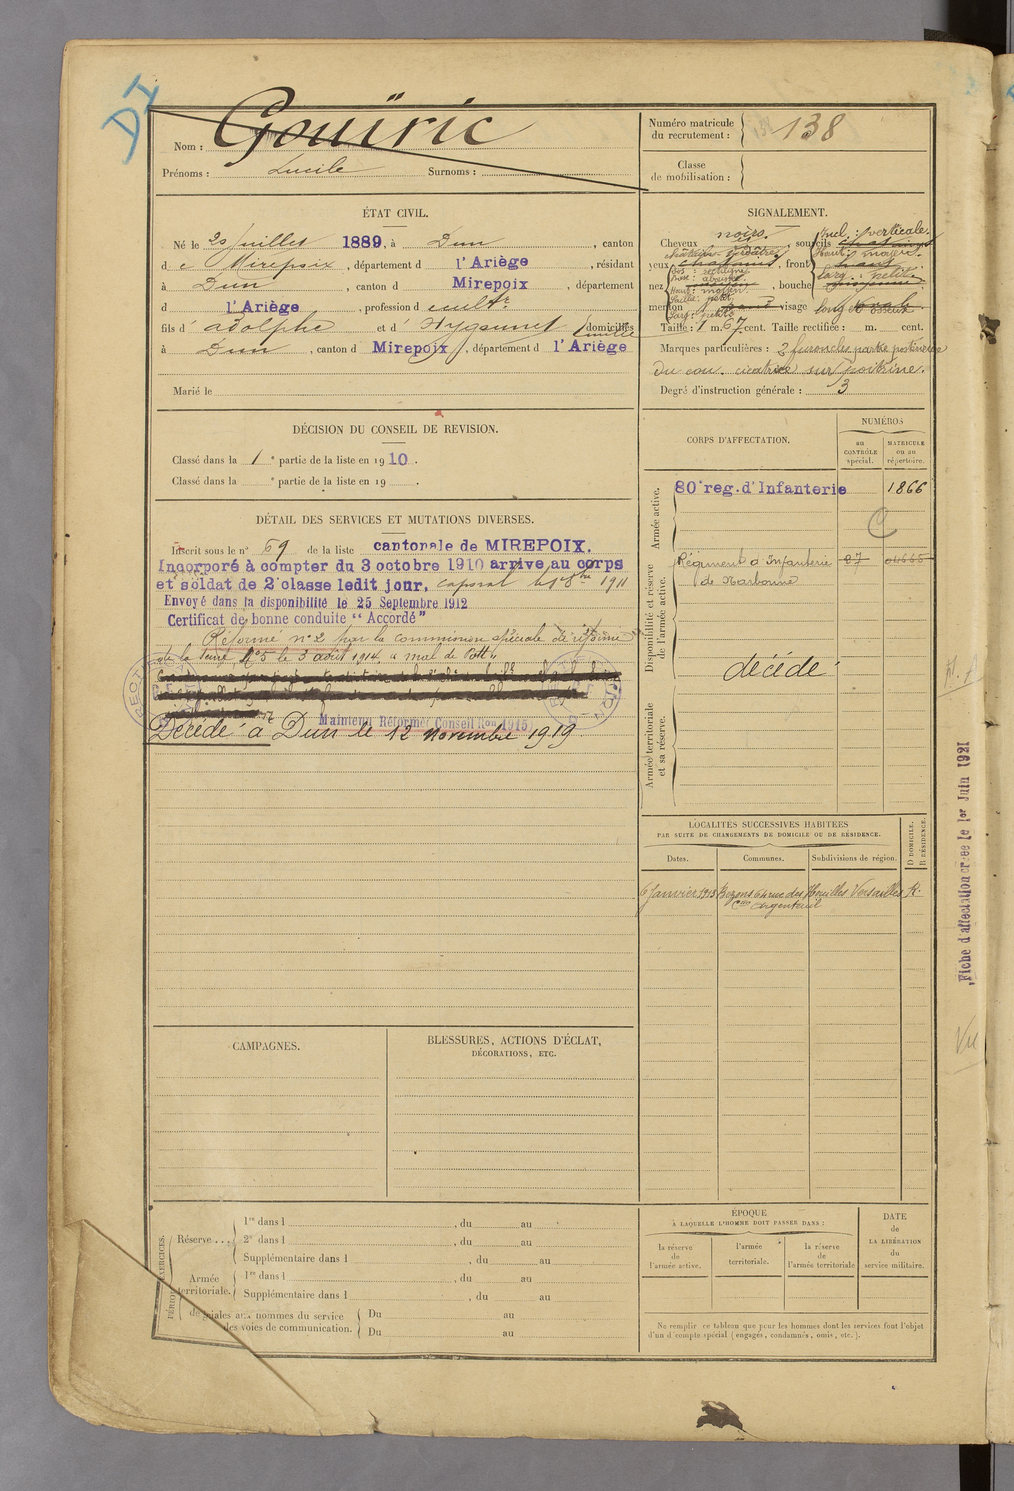 DI
Nom : Gouïric
Prénoms : Lucile Surnoms :
Numéro matricule
du recrutement : 138
Classe
de mobilisation :
ÉTAT CIVIL.
Né le 20 Juillet 1889, à Dun, canton
de Mirepoix, département d l'Ariège, résidant
à Dun, canton d Mirepoix, département
d l'Ariège, profession d cultr
fils d' adolphe et d' domiciliés
à Dun, canton d Mirepoix, département d l'Ariège
Marié le
SIGNALEMENT.
Cheveux noirs. sourcils
Incl : verticale.
yeux front
Dos : rectiligne
Base : abaissée
nez bouche
Haut : moyen.
Saillie : petit
Larg : petite
menton visage long et osseux
Taille : 1 m. 67 cent. Taille rectifiée : m. cent.
Marques particulières : 2 furoncles partie postérieure
du cou. cicatrice sur poitrine.
Degré d'instruction générale : 3
DÉCISION DU CONSEIL DE REVISION.
Classé dans la 1e partie de la liste en 1910.
Classé dans la e partie de la liste en 19 .
DÉTAIL DES SERVICES ET MUTATIONS DIVERSES.
Inscrit sous le n° 69 de la liste cantonale de MIREPOIX.
Incorporé à compter du 3 octobre 1910 arrive au corps
et soldat de 2e classe ledit jour, caporal le 8 bre 1911
Envoyé dans la disponibilité le 25 Septembre 1912
Certificat de bonne conduite "Accordé"
Réformé n° 2 par la commission spéciale de réforme
de la Seine N°5 le 3 août 1914. "mal de Pott"
Maintenu Réformé (Conseil Ron 1915)
Décédé à Dun le 12 novembre 1919
CORPS D'AFFECTATION.
NUMÉROS
au
CONTRÔLE
spécial.
MATRICULE
ou au
répertoire.
Armée active.
80e reg. d'Infanterie 1866
Disponibilité et réserve
de l'armée active.
Régiment d'Infanterie 87
de Narbonne
décédé
Armée territoriale
et sa réserve.
LOCALITÉS SUCCESSIVES HABITÉES
PAR SUITE DE CHANGEMENTS DE DOMICILE OU DE RÉSIDENCE.
D DOMICILE.
R RÉSIDENCE.
Dates. Communes. Subdivisions de région.
6 Janvier 1913 Bezons rue des Houilles Versailles R.
Con Argenteuil
Fiche d'affectation créée le 1er Juin 1921
Vu
CAMPAGNES.
BLESSURES, ACTIONS D'ÉCLAT,
DÉCORATIONS, ETC.
PÉRIODES D'EXERCICES.
Réserve . . . 1re dans l , du au
2e dans l , du au
Supplémentaire dans l , du au
Armée
territoriale. 1re dans l , du au
Supplémentaire dans l , du au
spéciales aux hommes du service Du au
des voies de communication. Du au
ÉPOQUE
À LAQUELLE L'HOMME DOIT PASSER DANS :
la réserve
de
l'armée active.
l'armée
territoriale.
la réserve
de
l'armée territoriale
DATE
de
LA LIBÉRATION
du
service militaire.
Ne remplir ce tableau que pour les hommes dont les services font l'objet
d'un décompte spécial (engagés, condamnés, omis, etc.).